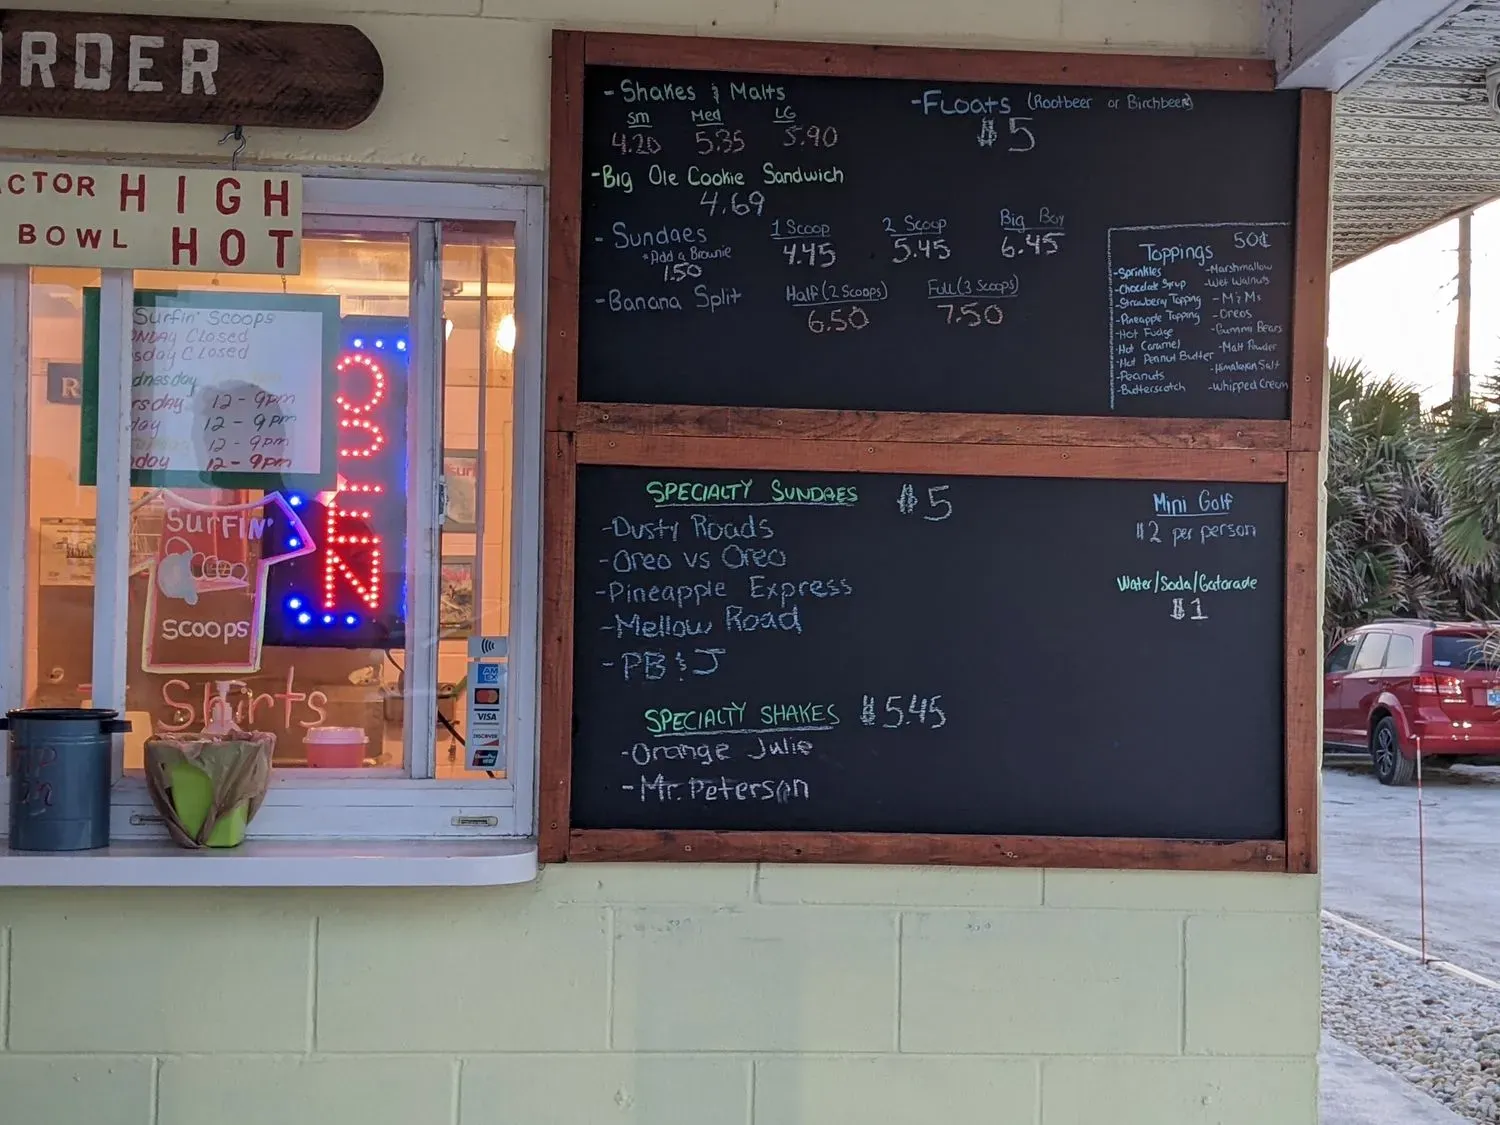 ORDER
ACTOR HIGH
BOWL HOT
Surfin' Scoops
Closed
Closed
12-9pm
12-9pm
12-9pm
12-9pm
OPEN
SURFIN'
SCOOPS
Shirts
AM EX
VISA
DISCOVER
- Shakes & Malts
SM Med LG
4.20 5.35 5.90
- Big Ole Cookie Sandwich
4.69
- Sundaes 1 Scoop 2 Scoop Big Boy
*Add a Brownie 4.45 5.45 6.45
1.50
- Banana Split Half (2 Scoops) Full (3 Scoops)
6.50 7.50
- Floats (Rootbeer or Birchbeer)
$5
Toppings 50¢
- Sprinkles
- Chocolate Syrup
- Strawberry Topping
- Pineapple Topping
- Hot Fudge
- Hot Caramel
- Hot Peanut Butter
- Peanuts
- Butterscotch
- Marshmallow
- Wet Walnuts
- M&Ms
- Oreos
- Gummi Bears
- Malt Powder
- Himalayan Salt
- Whipped Cream
SPECIALTY SUNDAES $5
- Dusty Roads
- Oreo vs Oreo
- Pineapple Express
- Mellow Road
- PB & J
SPECIALTY SHAKES $5.45
- Orange Julie
- Mr. Peterson
Mini Golf
$2 per person
Water/Soda/Gatorade
$1